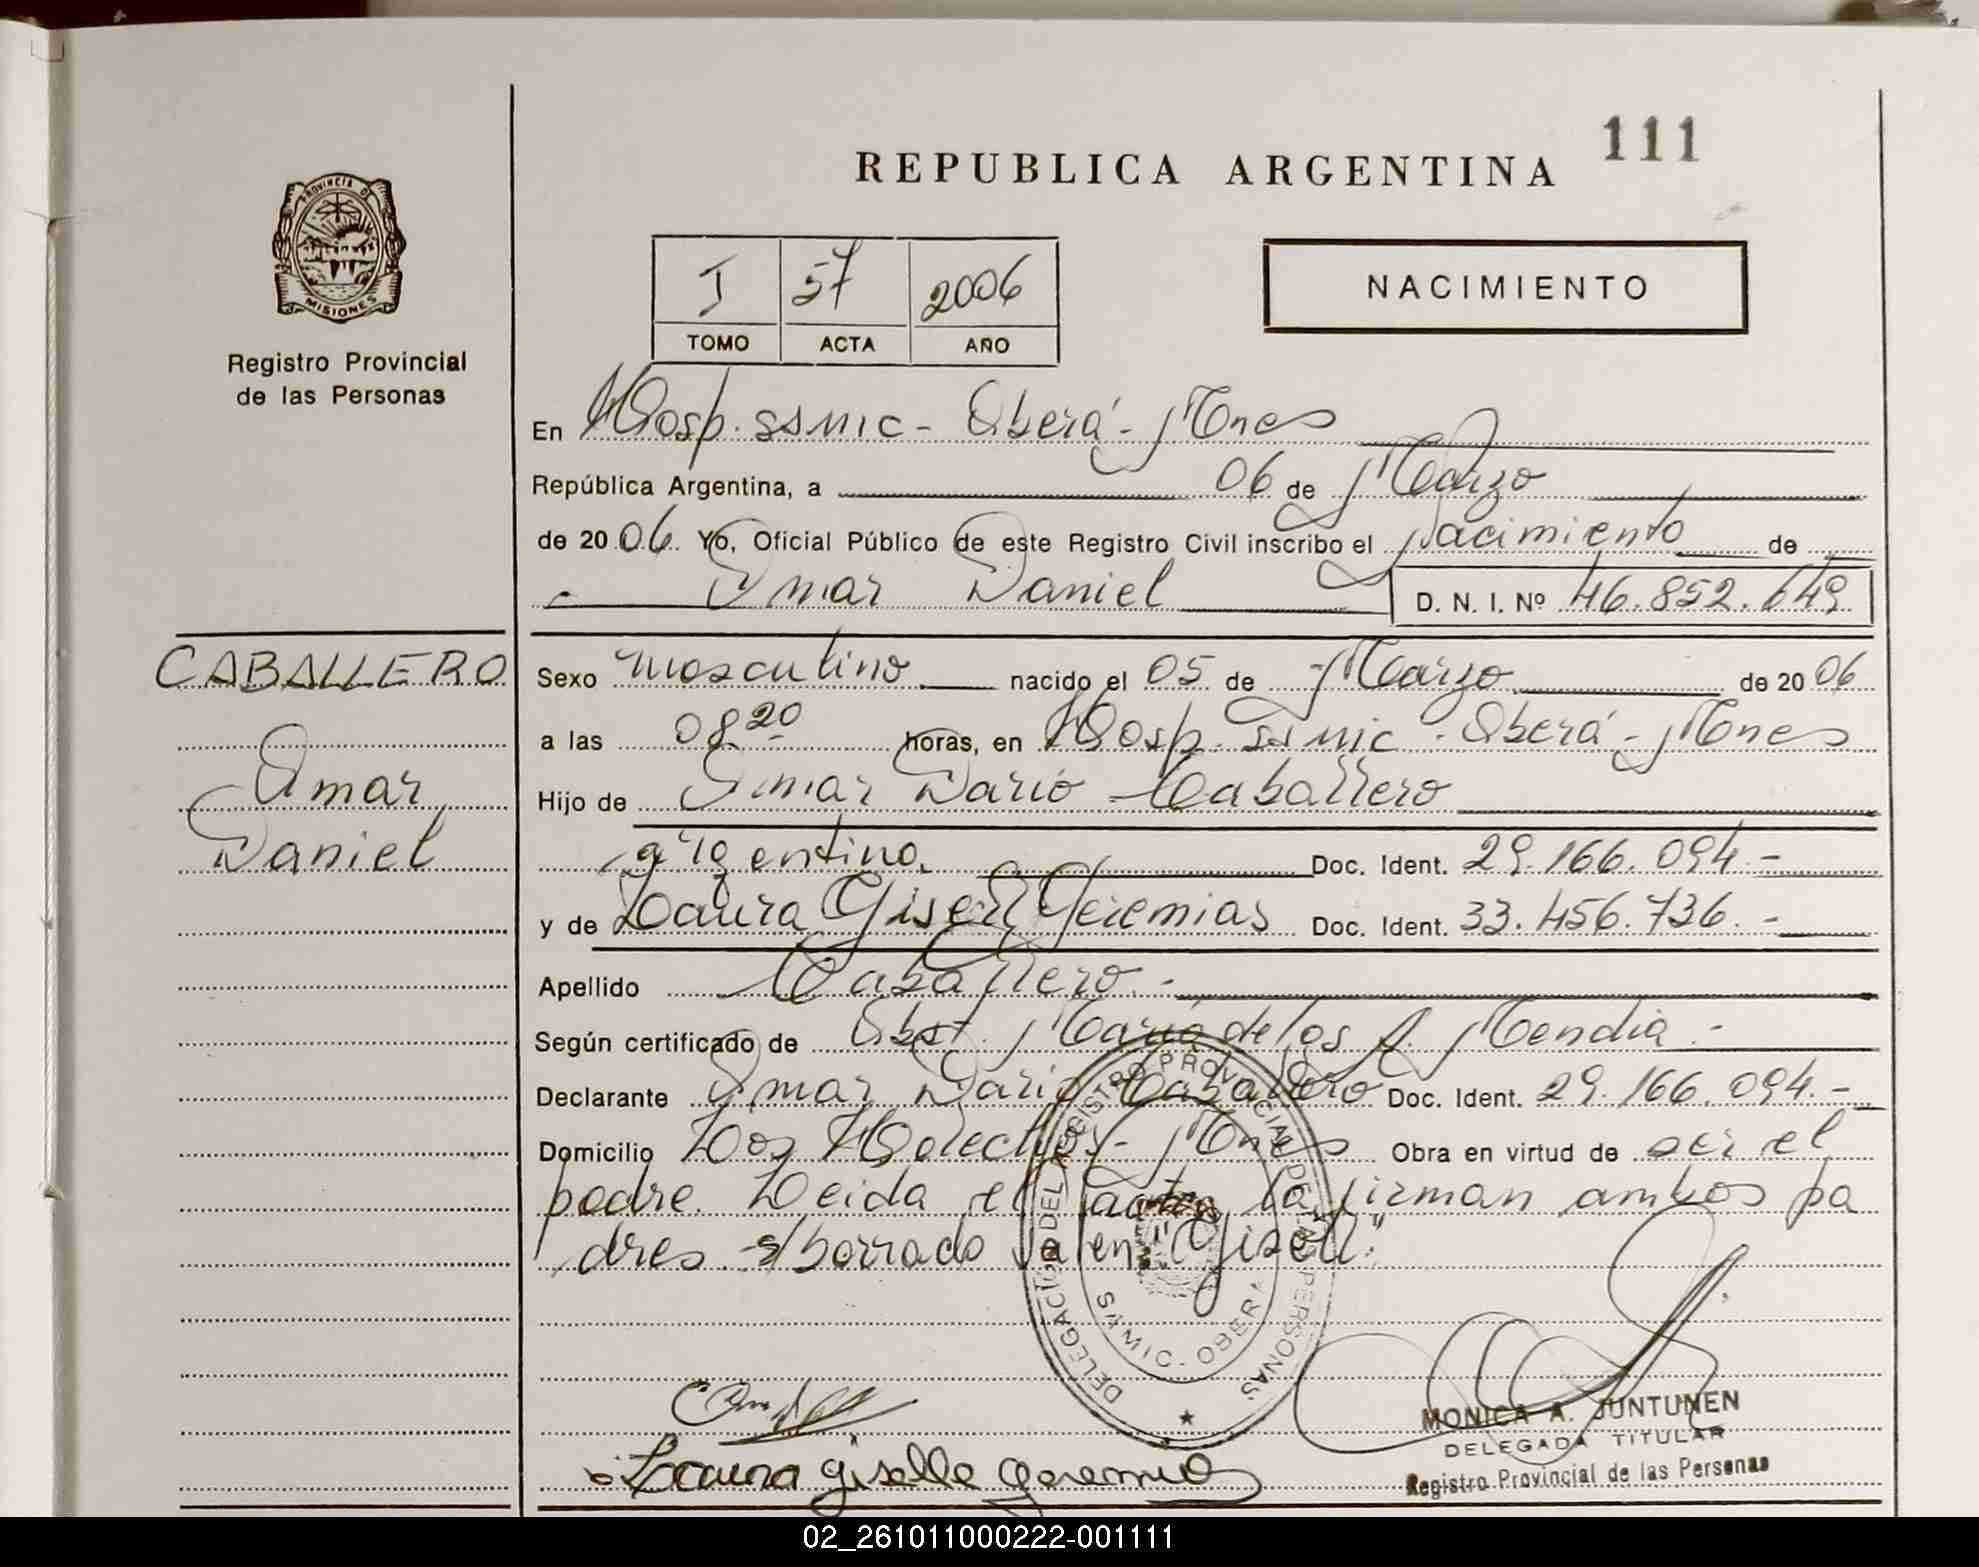 111
REPUBLICA ARGENTINA
PROVINCIA DE
MISIONES
Registro Provincial
de las Personas
I 57 2006
TOMO ACTA AÑO
NACIMIENTO
En Hosp. SSMIC - Oberá - Mnes
República Argentina, a 06 de Marzo
de 2006. Yo, Oficial Público de este Registro Civil inscribo el Nacimiento de
Omar Daniel D. N. I. Nº 46.852.649
CABALLERO
Omar
Daniel
Sexo masculino nacido el 05 de Marzo de 2006
a las 08 20 horas, en Hosp. SSMIC - Oberá - Mnes
Hijo de Omar Dario Caballero
argentino. Doc. Ident. 29.166.094.-
y de Laura Gisell Geremias Doc. Ident. 33.456.736.-
Apellido Caballero.-
Según certificado de Obst. María de los A. Mendia.-
Declarante Omar Dario Caballero Doc. Ident. 29.166.094.-
Domicilio Los Helechos - Mnes Obra en virtud de ser el
padre. Leida el acta la firman ambos pa
dres. s/borrado Vale en: "Gisell".
DELEGACIÓN DEL REGISTRO PROVINCIAL DE LAS PERSONAS
SWMIC - OBERA
Laura giselle geremias
MONICA A. JUNTUNEN
DELEGADA TITULAR
Registro Provincial de las Personas
02_261011000222-001111